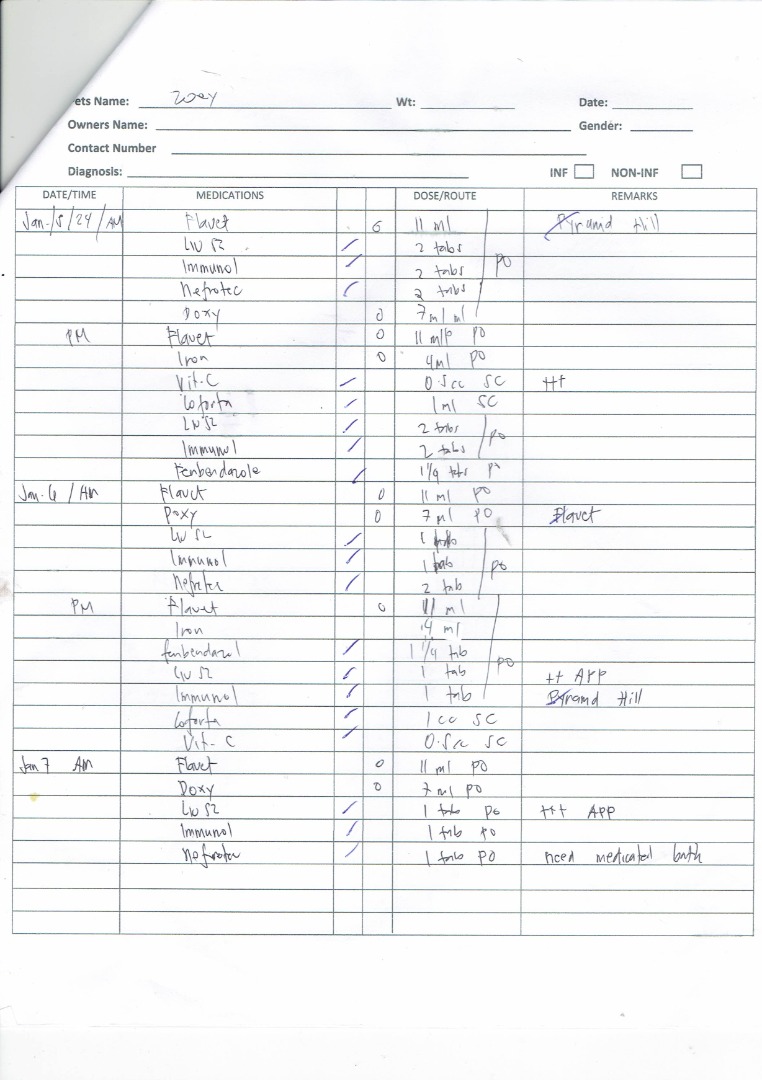 ets Name: Zoey Wt: Date:
Owners Name: Gender:
Contact Number
Diagnosis: INF NON-INF
DATE/TIME MEDICATIONS DOSE/ROUTE REMARKS
Jan-/5/24/AM Flavet 11 ml Pyramid Hill
LIV 52 2 tabs
Immunol 2 tabs PO
Nefrotec 2 tabs
Doxy 0 7 ml
PM Flavet 0 11 ml PO
Iron 0 4ml PO
Vit-C 0.5cc SC ++
Coforta 1 ml SC
LIV 52 2 tabs PO
Immunol 2 tabs
Fenbendazole 1 1/4 tabs PO
Jan-6 / AM Flavet 0 11 ml PO
Doxy 0 7 ml PO Flavet
LIV 52 1
Immunol 1 tab PO
Nefrotec 2 tab
PM Flavet 0 11 ml
Iron 4 ml
fenbendazol 1 1/4 tab PO
LIV 52 1 tab ++ App
Immunol 1 tab Pyramid Hill
Coforta 1 cc SC
Vit-C 0.5cc SC
Jan 7 AM Flavet 0 11 ml PO
Doxy 0 7 ml PO
LIV 52 1 tab PO +++ APP
Immunol 1 tab PO
Nefrotec 1 tab PO need medicated bath